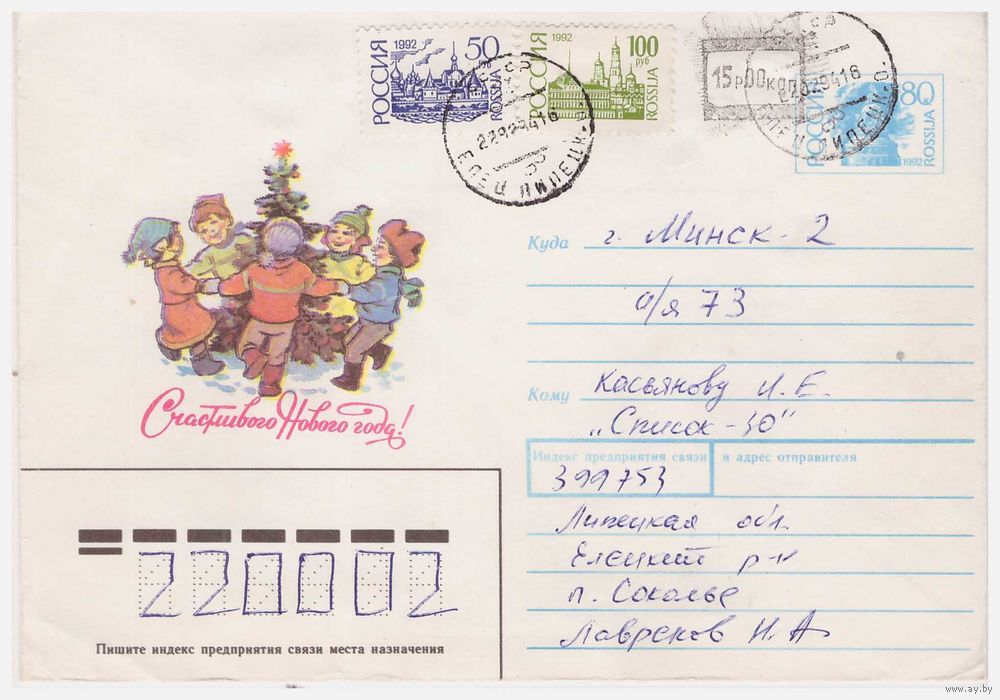 РОССИЯ 1992 50 руб ROSSIJA
РОССИЯ 1992 100 руб ROSSIJA
15р00к
РОССИЯ 80 1992 ROSSIJA
СССР
ЕЛЕЦ ЛИПЕЦК. О.
Куда г. Минск-2
а/я 73
Кому Касьянову И. Е.
„Список-30"
Индекс предприятия связи и адрес отправителя
399753
Липецкая обл.
Елецкий р-н
п. Соколье
Лавренов Н. А
Счастливого Нового года!
220002
Пишите индекс предприятия связи места назначения
www.ay.by